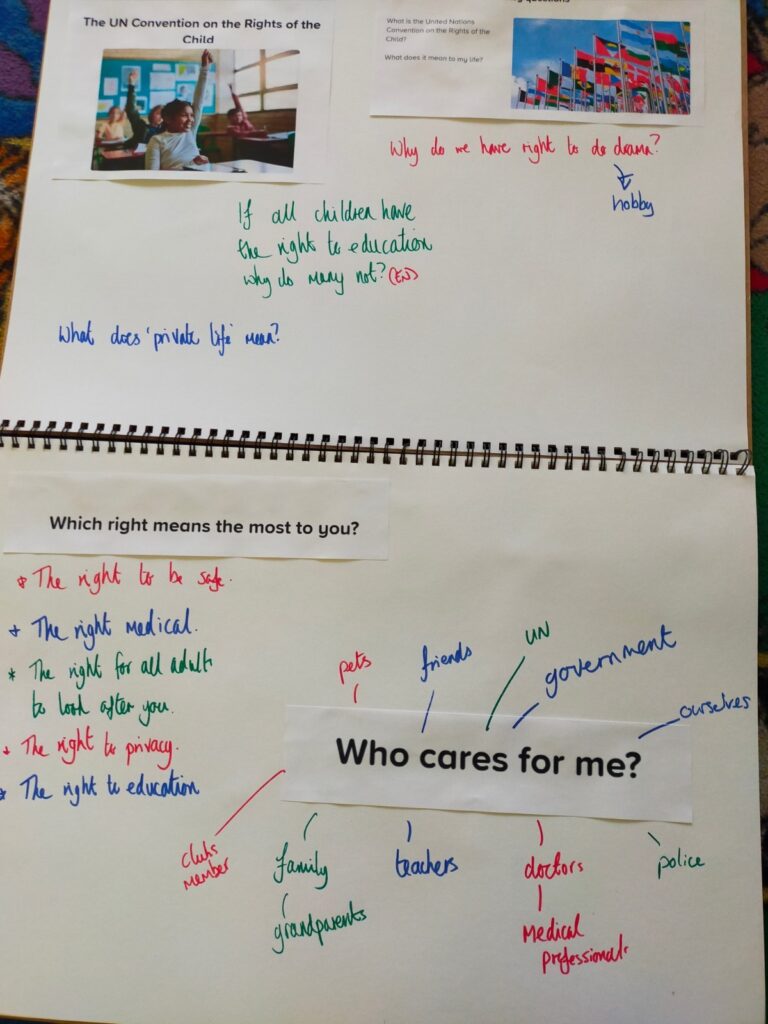 The UN Convention on the Rights of the
Child
questions
What is the United Nations
Convention on the Rights of the
Child?
What does it mean to my life?
Why do we have right to do drama?
hobby
If all children have
the right to education
why do many not? (EN)
What does 'private life' mean?
Which right means the most to you?
* The right to be safe.
* The right medical.
* The right for all adults
to look after you.
* The right to privacy.
* The right to education
pets
friends
UN
government
ourselves
Who cares for me?
clubs
member
family
grandparents
teachers
doctors
Medical
professionals
police